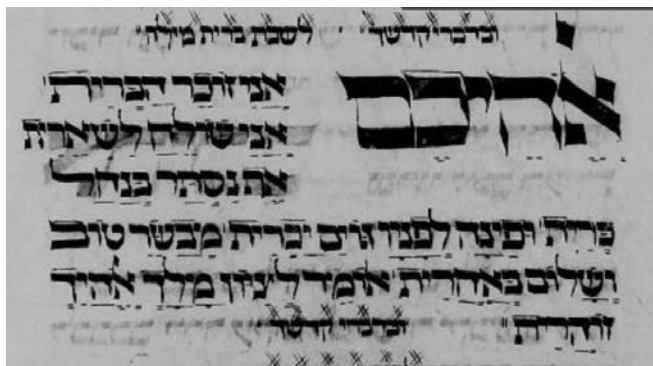 ובדברי קדשך׳ לשבת ברית מילה׳
אני זוכר הברית׳
אני שולח לשארית
את נסתר בנחל
כרית׳ ופינה לפניו גוים יכרית׳ מבשר טוב
ושלום באחרית׳ אומר לציון מלך אלהיך
ובדברי קדשך